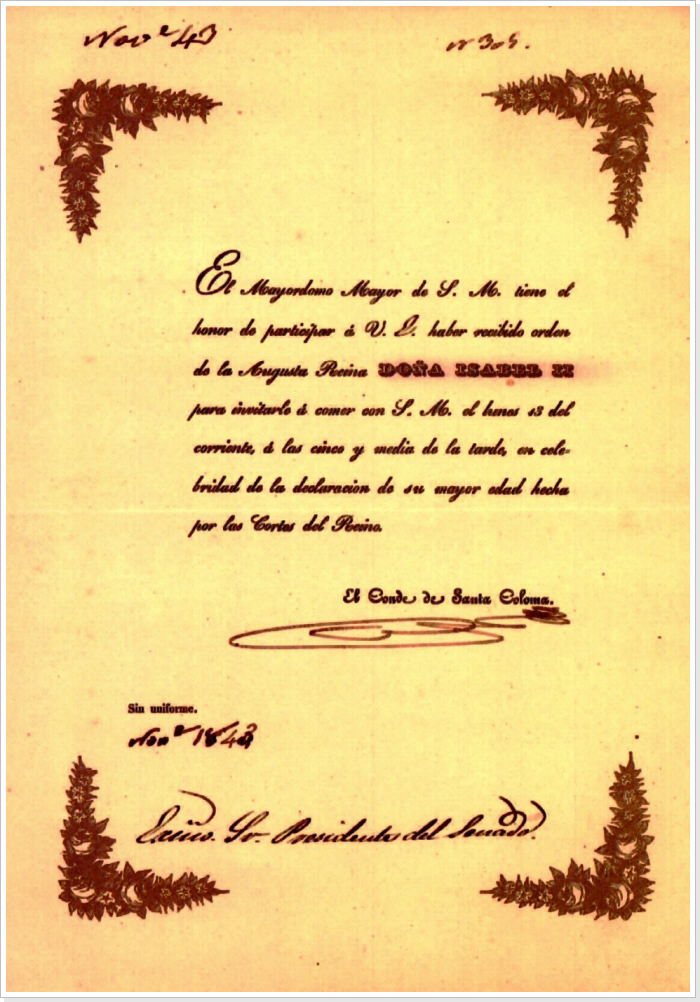 Nov.e 43
nº 305.
El Mayordomo Mayor de S. M. tiene el
honor de participar á V. E. haber recibido orden
de la Augusta Reina DOÑA ISABEL II
para invitarle á comer con S. M. el lunes 13 del
corriente, á las cinco y media de la tarde, en cele-
bridad de la declaracion de su mayor edad hecha
por las Cortes del Reino.
El Conde de Santa Coloma.
Sin uniforme.
Nov.e 1843
Exmo. Sr. Presidente del Senado.